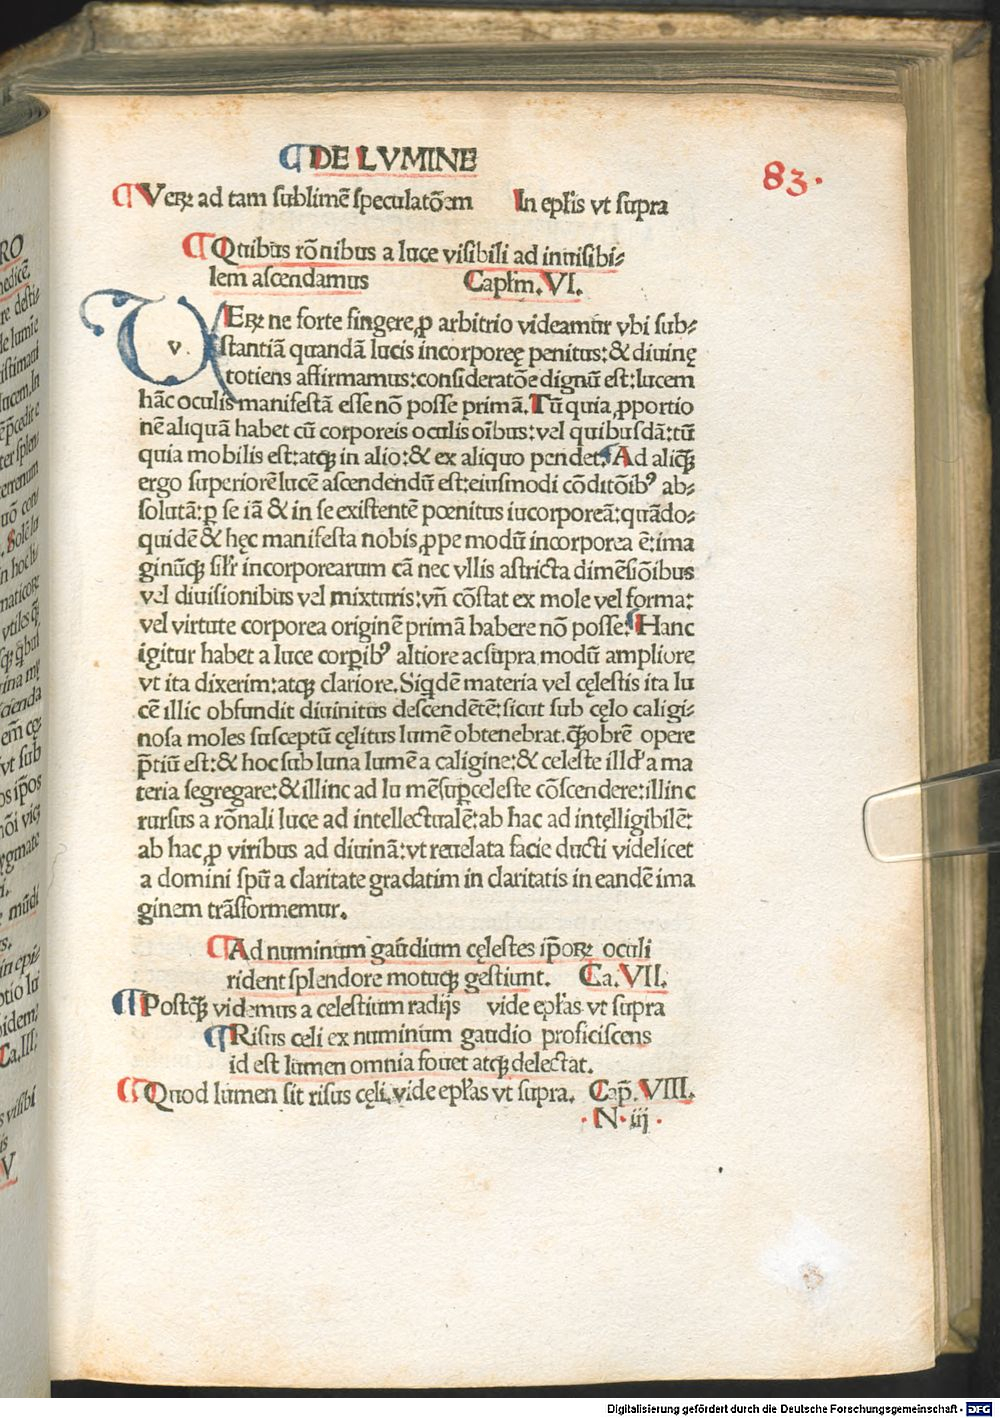 ¶DE LVMINE
83.
¶Veꝝ ad tam sublimē speculatōem In epl̃is vt supra
¶Quibus rōnibus a luce visibili ad inuisibi⸗
lem ascendamus Capl̃m. VI.
v. Eꝝ ne forte fingere ꝓ arbitrio videamur vbi sub⸗
stantiā quandā lucis incorporeę penitus: & diuinę
totiens affirmamus: consideratōe dignū est: lucem
hāc oculis manifestā esse nō posse primā. Tū quia ꝓportio
nē aliquā habet cū corporeis oculis oībus: vel quibusdā: tū
quia mobilis est: atqꝫ in alio: & ex aliquo pendet. ¶Ad aliqꝫ
ergo superiorē lucē ascendendū est: eiusmodi cōditōibꝰ ab⸗
solutā: ꝑ se iā & in se existentē pœnitus iucorporeā: quādo⸗
quidē & hęc manifesta nobis ꝓpe modū incorporea ē: ima
ginūqꝫ sil̃r incorporearum cā nec vllis astricta dimēsiōibus
vel diuisionibus vel mixturis: vñ cōstat ex mole vel forma:
vel virtute corporea originē primā habere nō posse: ¶Hanc
igitur habet a luce corꝑibꝰ altiore ac supra modū ampliore
vt ita dixerim: atqꝫ clariore. Siqͥdē materia vel cęlestis ita lu
cē illic obfundit diuinitus descendētē: sicut sub cęlo caligi⸗
nosa moles susceptū cęlitus lumē obtenebrat. qꝫobrē opere
p̄tiū est: & hoc sub luna lumē a caligine: & celeste illd' a ma
teria segregare: & illinc ad lu mē suꝑceleste cōscendere: illinc
rursus a rōnali luce ad intellectualē: ab hac ad intęlligibilē:
ab hac ꝓ viribus ad diuinā: vt reuelata facie ducti videlicet
a domini spū a claritate gradatim in claritatis in eandē ima
ginem trāsformemur.
¶Ad numinum gaūdium cęlestes ip̄oꝝ oculi
rident splendore motuqꝫ gestiunt. Ca. VII.
¶Postqꝫ videmus a celestium radijs vide epl̃as vt supra
¶Risus celi ex numinum gaudio proficiscens
id est lumen omnia fouet atqꝫ delectat.
¶Quod lumen sit risus cęli. vide epl̃as vt supra. Cap̃. VIII.
·N·iij·
Digitalisierung gefördert durch die Deutsche Forschungsgemeinschaft - DFG